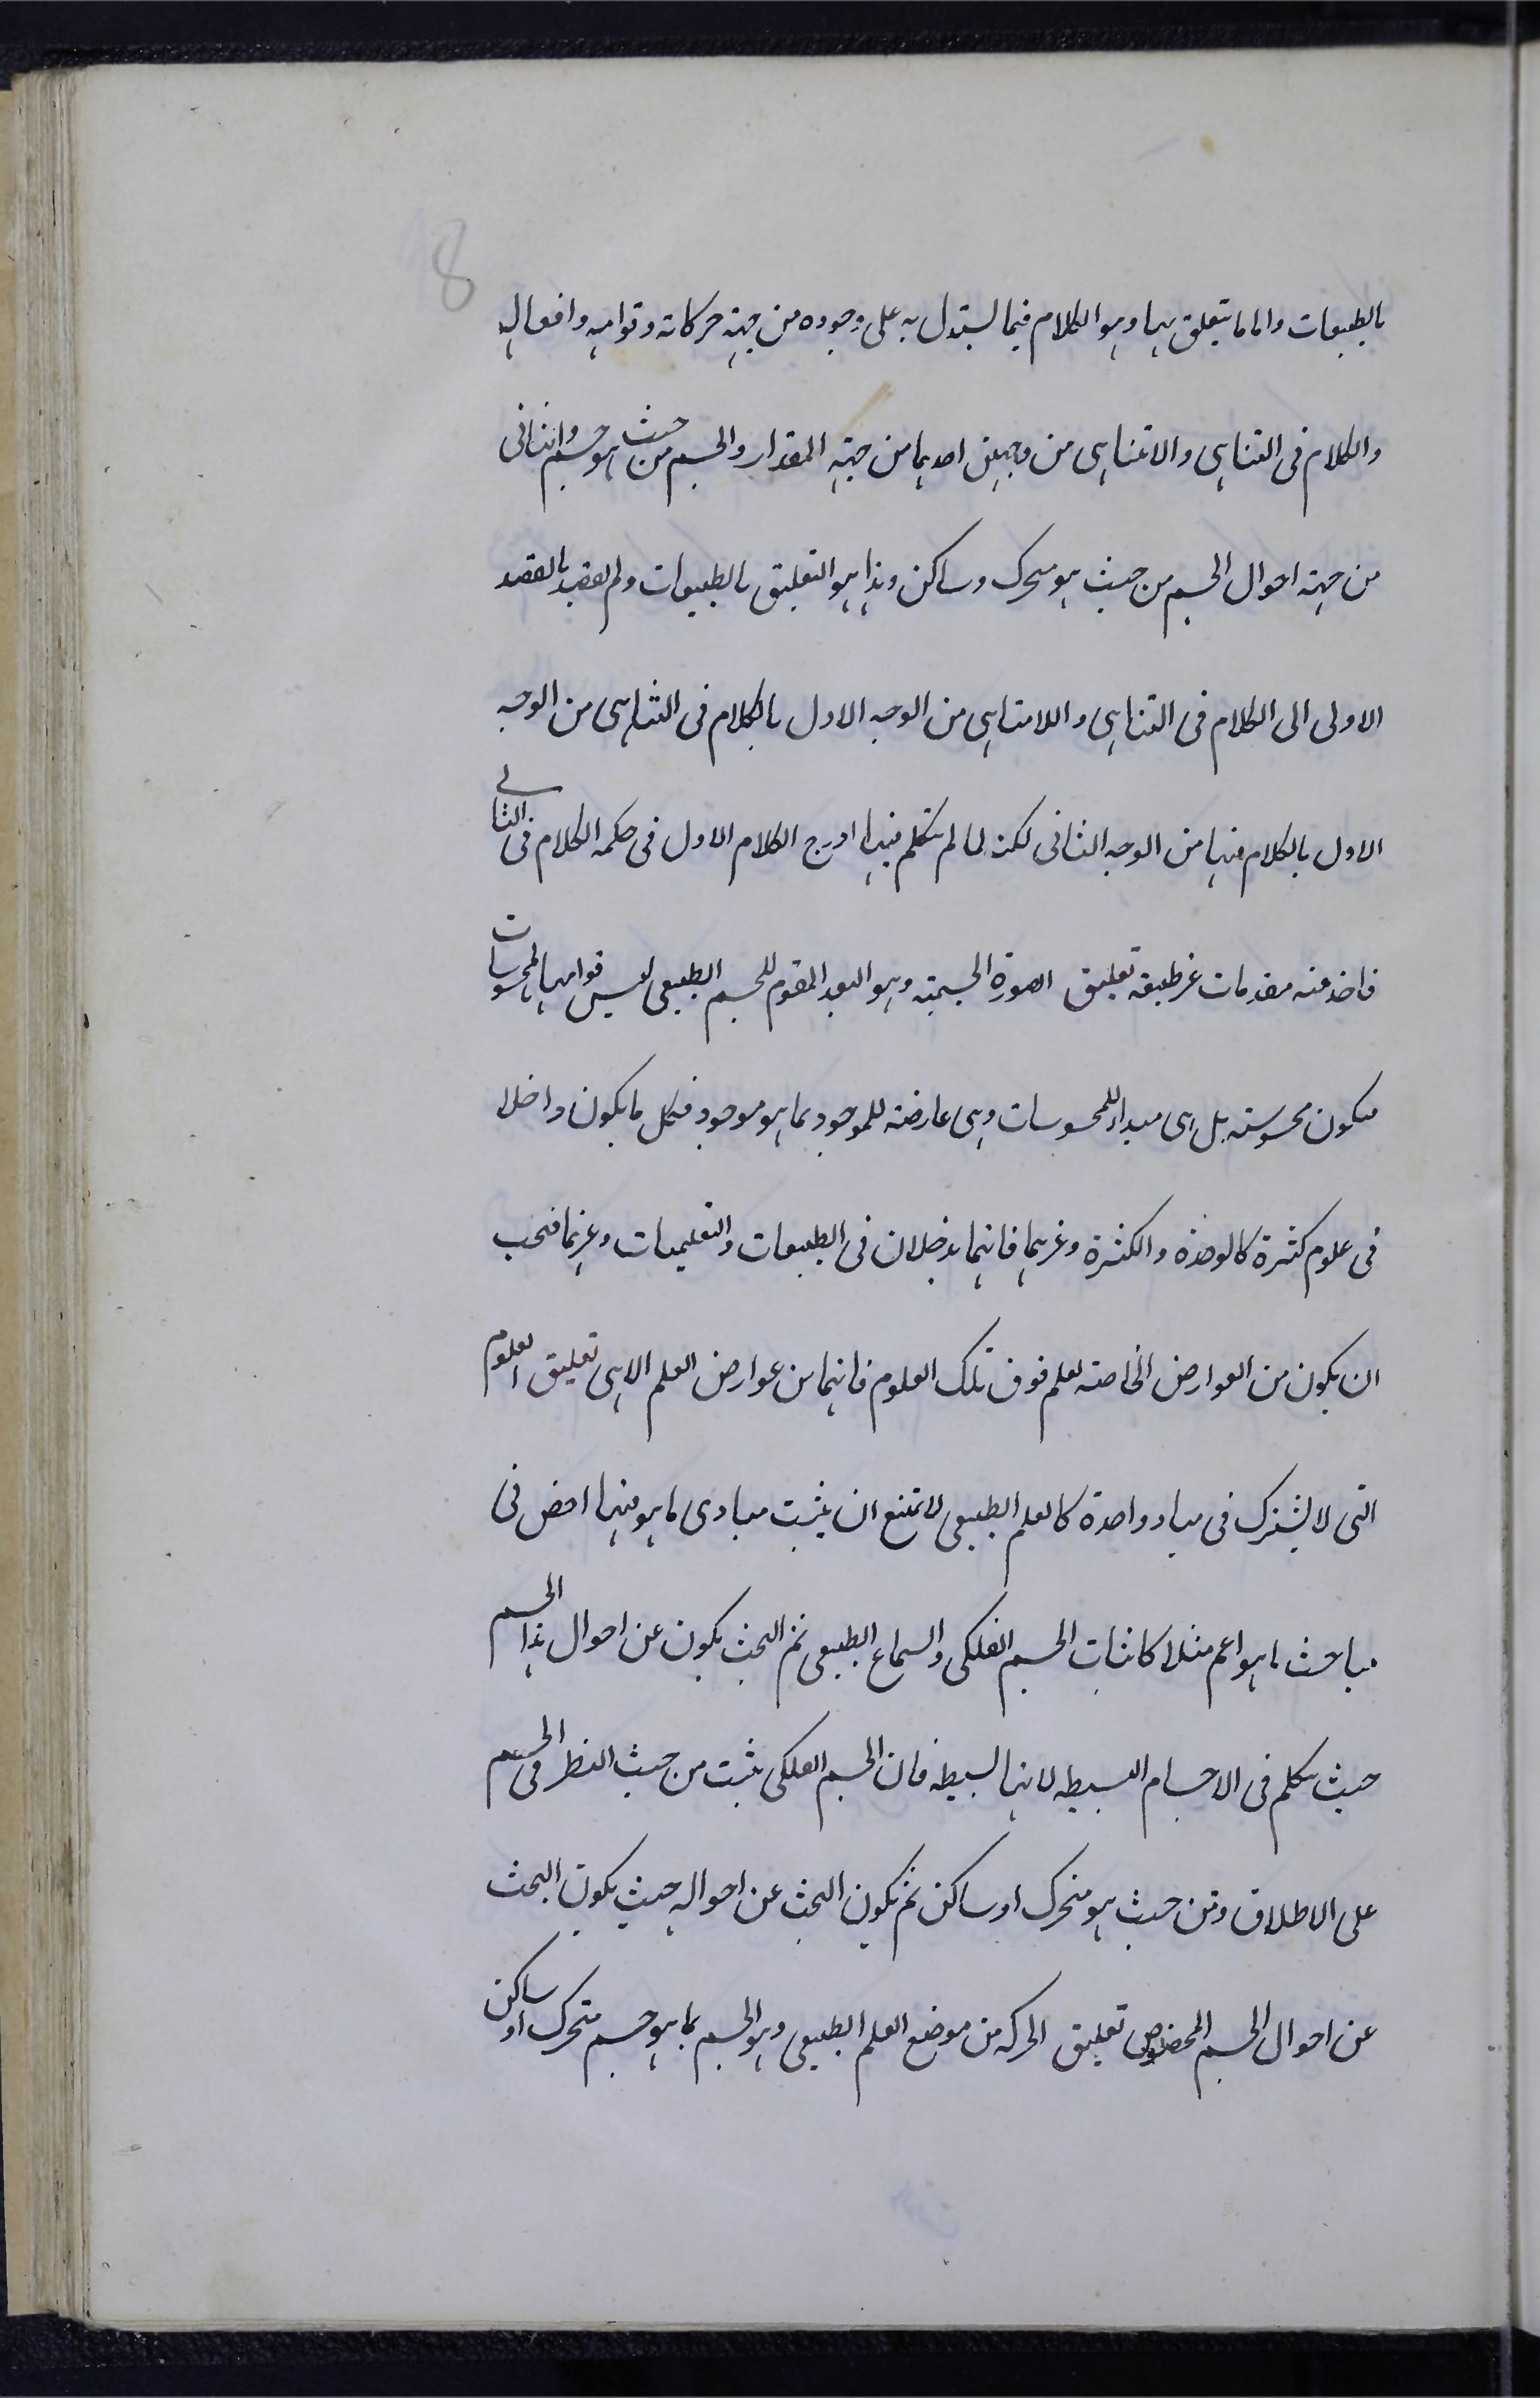 8
بالطبيعات واما ما يتعلق بها وهو الكلام فيما يستدل به على وجوده من جهة حركاته وقوامه وافعاله
والكلام فى التناهى والاتناهى من وجهين احدهما من جهة المقدار والجسم من حيث هو جسم والثانى
من جهة احوال الجسم من حيث هو متحرك وساكن وهذا هو التعليق بالطبيعات ولم يقصد بالقصد
الاولى الى الكلام فى التناهى واللامتناهى من الوجه الاول بالكلام فى التناهى من الوجه
الاول بالكلام فيها من الوجه الثانى لكنه لما لم يتكلم فيها ادرج الكلام الاول فى حكمه الكلام فى الثانى
فاخذ منه مقدمات غير طبيعة تعليق الصورة الجسمية وهو البعد المقوم للجسم الطبيعى ليس قوامها بالمحسوسات
فيكون محسوسة بل هى مبداء للمحسوسات وهى عارضة للموجود بما هو موجود فكل ما يكون داخلا
فى علوم كثيرة كالوحدة والكثرة وغيرهما فانهما يدخلان فى الطبيعات والتعليميات وغيرهما فيجب
ان يكون من العوارض الخاصة لعلم فوق تلك العلوم فانهما من عوارض العلم الالهى تعليق العلوم
التى لا يشترك فى مباد واحدة كالعلم الطبيعى لا يمتنع ان يثبت مبادى ما هو منها اخص فى
مباحث ما هو اعم مثلا كاثبات الجسم الفلكى والسماع الطبيعى ثم البحث يكون عن احوال هذا الجسم
حيث يتكلم فى الاجسام البسيطه لانها بسيطه فان الجسم الفلكى يثبت من حيث النظر فى الجسم
على الاطلاق ومن حيث هو متحرك او ساكن ثم يكون البحث عن احواله حيث يكون البحث
عن احوال الجسم المخصوص تعليق الحركه من موضع العلم الطبيعى وهو الجسم بما هو جسم متحرك او ساكن